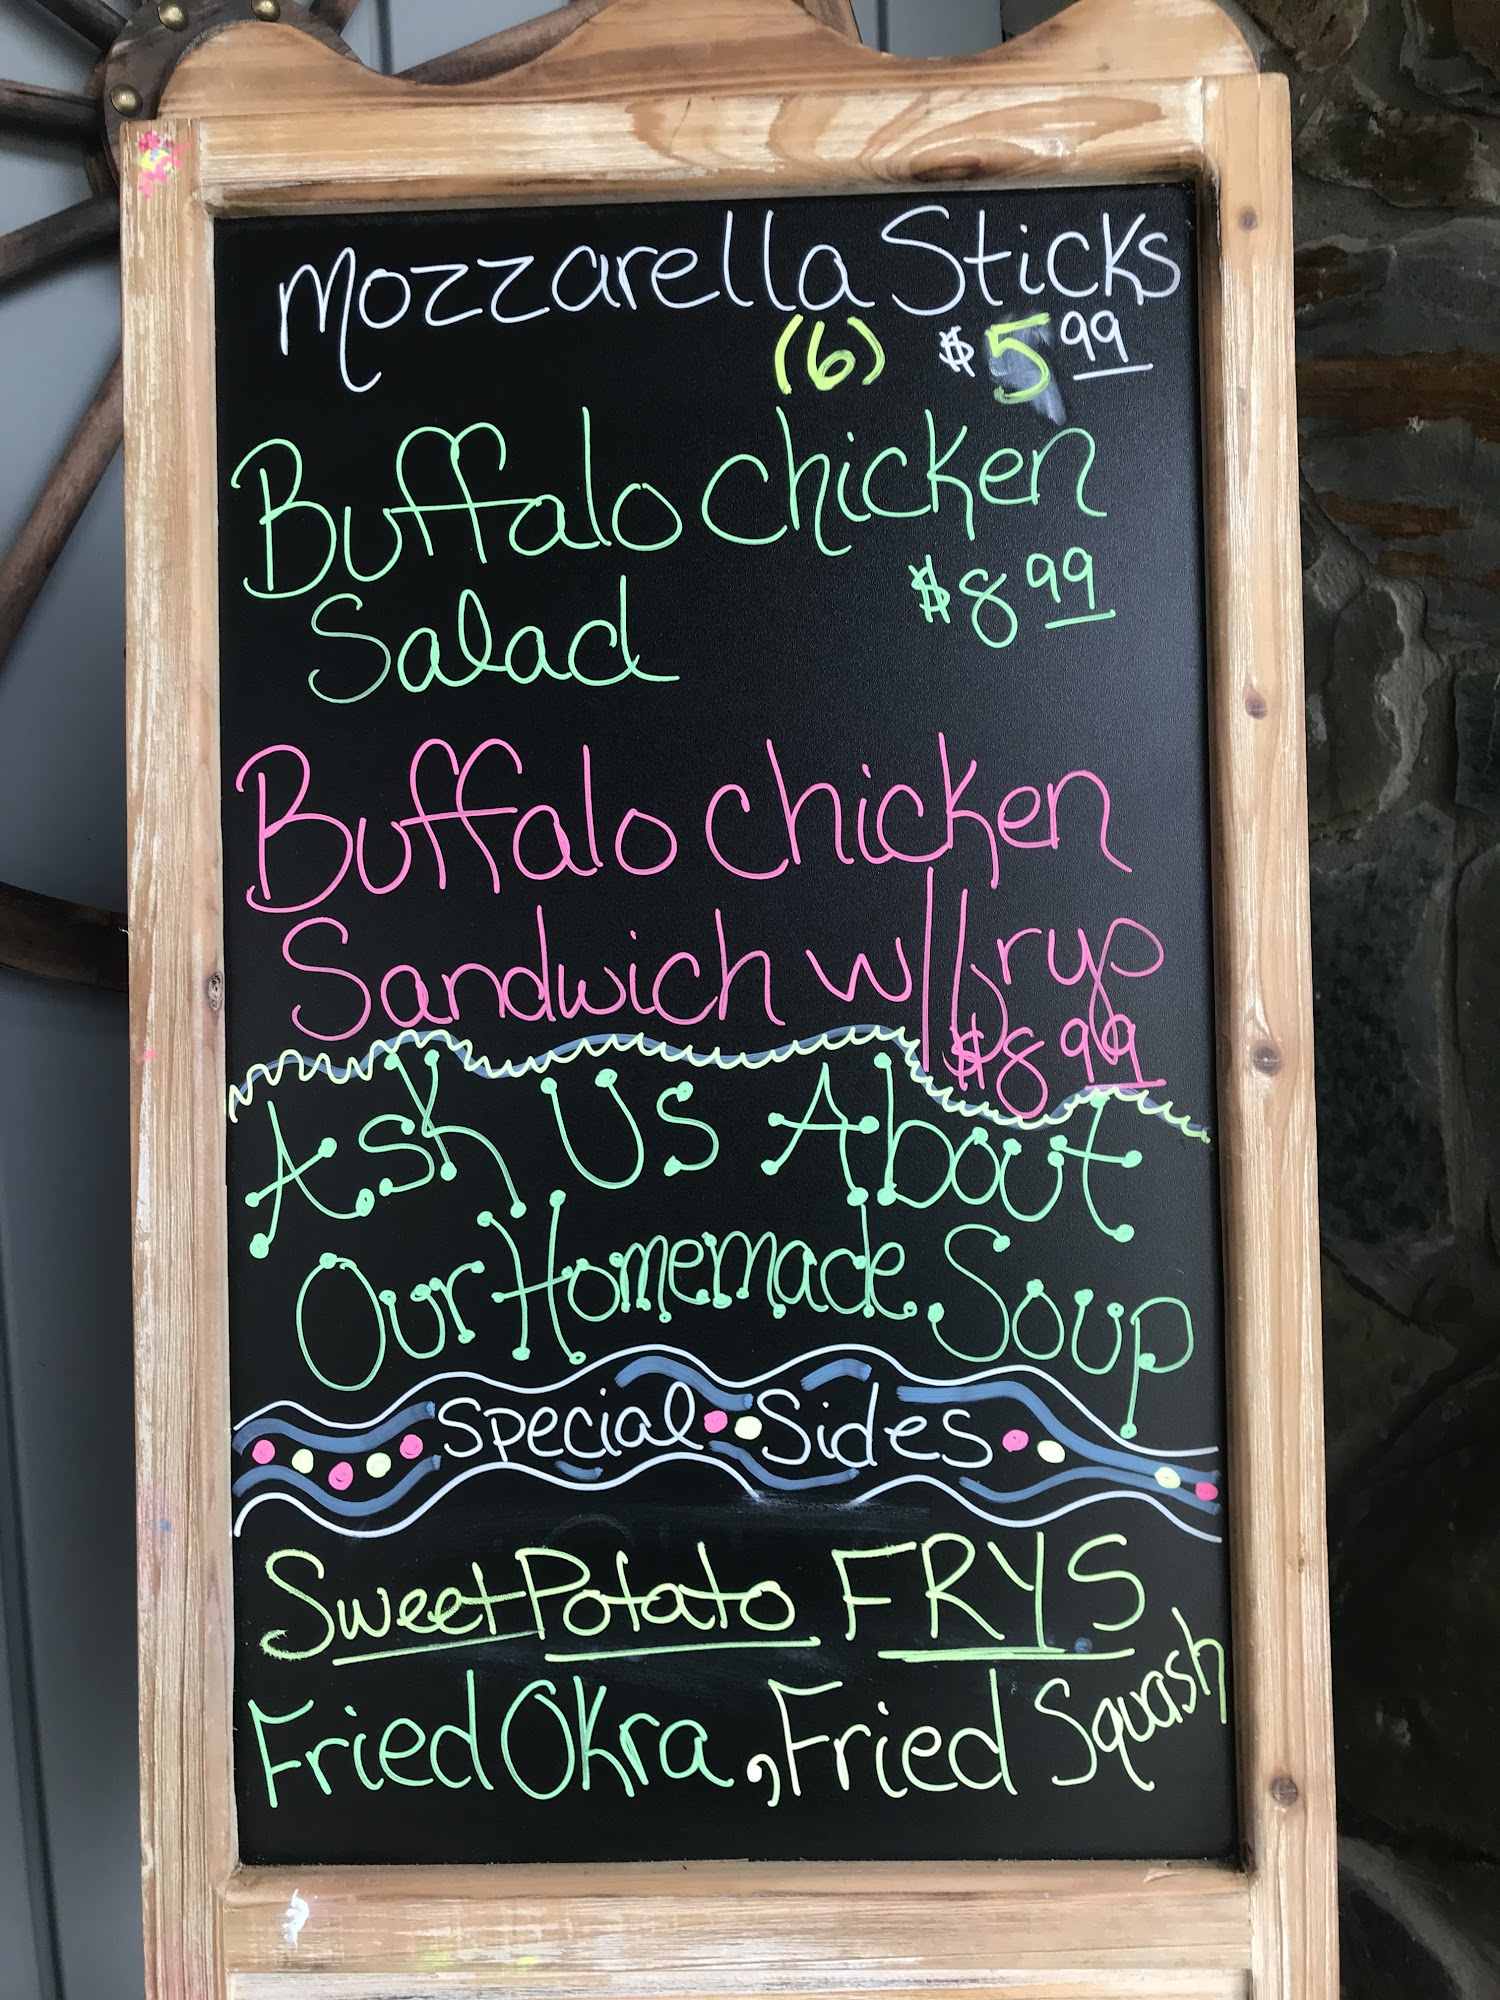 Mozzarella Sticks
(6) $5.99
Buffalo Chicken
Salad $8.99
Buffalo Chicken
Sandwich w/frys
$8.99
Ask Us About
Our Homemade Soup
Special Sides
Sweet Potato FRYS
Fried Okra, Fried Squash